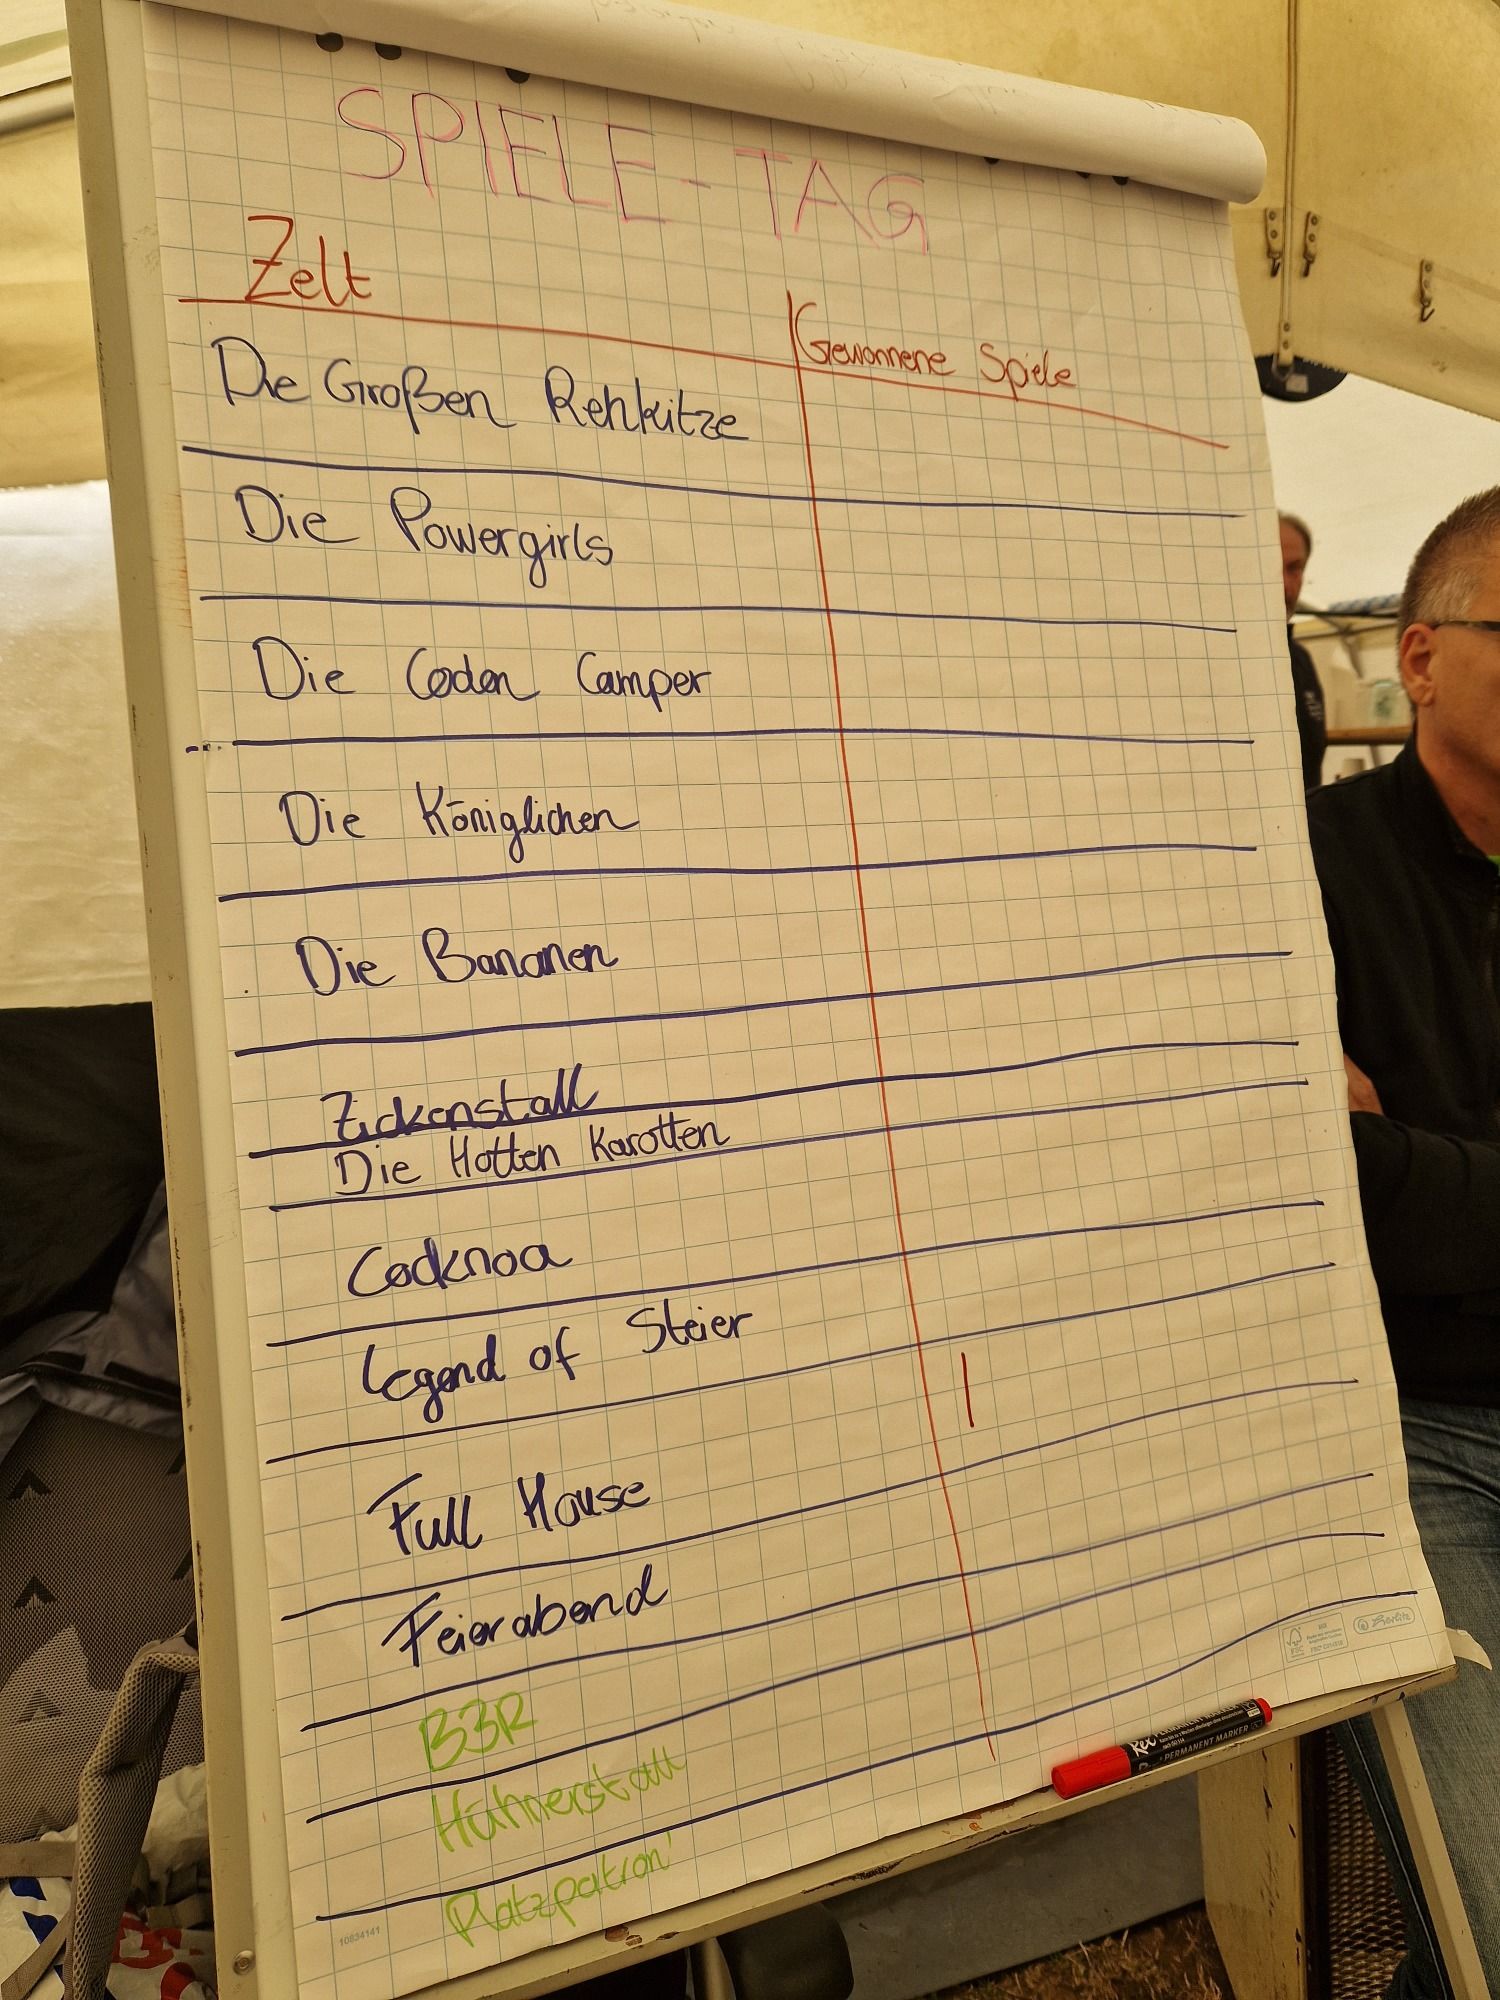 SPIELE-TAG
Zelt
Gewonnene Spiele
Die Großen Rehkitze
Die Powergirls
Die Coden Camper
Die Königlichen
Die Bananen
Zickenstall
Die Hotten Karotten
Cocknoa
Legend of Steier
Full House
Feierabend
B3R
Hühnerstall
Platzpatron'
10634141
FSC
MIX
Berlitz
Rex
PERMANENT MARKER